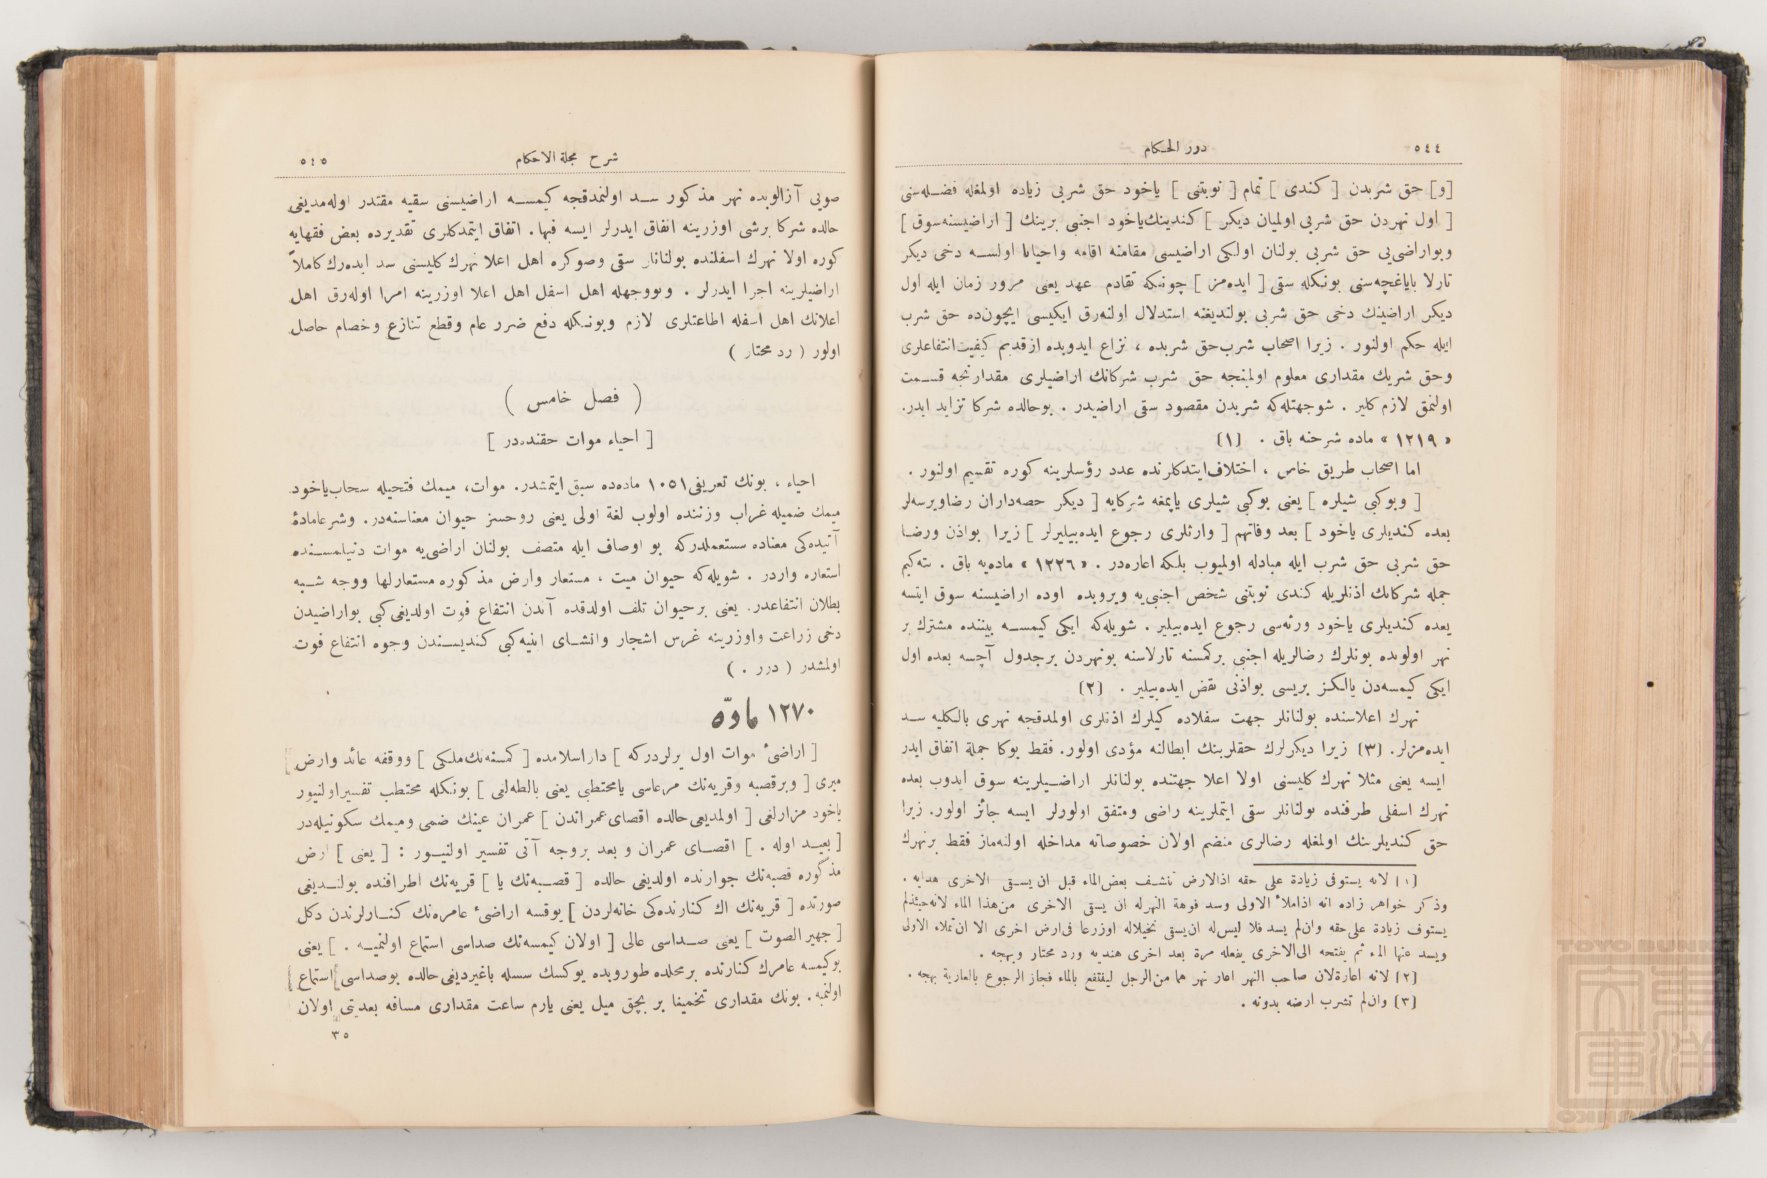 ٥٤٤
درر الحكام
[و] حق شربدن [ كندی ] تمام [ نوبتنی ] ياخود حق شربی زياده اولمغله فضله‌سنی
[ اول نهردن حق شربی اولميان ديكر ] كندينك ياخود اجنبی برينك [ اراضيسنه سوق ]
وبواراضی‌يی حق شربی بولنان اولكی اراضيسی مقامنه اقامه واحيانا اولسه دخی ديكر
تارلا ياباغچه‌سنی بونكله سقی [ ايده‌مز ] چونكه تقادم عهد يعنی مرور زمان ايله اول
ديكر اراضينك دخی حق شربی بولنديغنه استدلال اولنه‌رق ايكيسی ايچون‌ده حق شرب
ايله حكم اولنور . زيرا اصحاب شرب حق شربده ، نزاع ايدوبده ازقديم كيفيت انتفاعلری
وحق شربك مقداری معلوم اولمينجه حق شرب شركانك اراضيلری مقدارنجه قسمت
اولنمق لازم كلير . شوجهتله‌كه شربدن مقصود سقی اراضيدر . بوحالده شركا تزايد ايدر.
« ١٢١٩ » ماده شرحنه باق . (١)
اما اصحاب طريق خاص ، اختلاف ايتدكلرنده عدد رؤسلرينه كوره تقسيم اولنور .
[ وبوكبی شيلره ] يعنی بوكبی شيلری ياپمغه شركايه [ ديكر حصه‌داران رضا ويرسه‌لر
بعده كنديلری ياخود ] بعد وفاتهم [ وارثلری رجوع ايده‌بيليرلر ] زيرا بواذن ورضا
حق شربی حق شرب ايله مبادله اولميوب بلكه اعاره‌در . « ١٢٢٦ » ماده‌يه باق . نته‌كيم
جمله شركانك اذنلريله كندی نوبتنی شخص اجنبی‌يه ويروبده اوده اراضيسنه سوق ايتسه
بعده كنديلری ياخود ورثه‌سی رجوع ايده‌بيلير . شويله‌كه ايكی كيمسه بيننده مشترك بر
نهر اولوبده بونلرك رضالريله اجنبی بركمسنه تارلاسنه بونهردن برجدول آچسه بعده اول
ايكی كيمسه‌دن يالكز بريسی بواذنی نقض ايده‌بيلير . (٢)
نهرك اعلاسنده بولنانلر جهت سفلاده كيلرك اذنلری اولمدقجه نهری بالكليه سد
ايده‌مزلر. (٣) زيرا ديكرلرك حقلرينك ابطالنه مؤدی اولور. فقط بوكا جملة اتفاق ايدر
ايسه يعنی مثلا نهرك كليسنی اولا اعلا جهتنده بولنانلر اراضيلرينه سوق ايدوب بعده
نهرك اسفلی طرفنده بولنانلر سقی ايتملرينه راضی ومتفق اولورلر ايسه جائز اولور. زيرا
حق كنديلرينك اولمغله رضالری منضم اولان خصوصاته مداخله اولنه‌ماز فقط برنهرك
(١) لانه يستوفی زيادة علی حقه اذالارض تنشف بعض‌الماء قبل ان يسقی الاخری هدايه .
وذكر خواهر زاده انه اذاملاء الاولی وسد فوهة النهرله ان يسقی الاخری من‌هذا الماء لانه حينئذلم
يستوف زيادة علی حقه وان‌لم يسد فلا ليس‌له ان‌يسقی نخيلاله اوزرعا فی‌ارض اخری الا ان تملاء الاولی
ويسد عنها الماء ثم يفتحه الی‌الاخری يفعله مرة بعد اخری هنديه ورد محتار وبهجه .
(٢) لانه اعارةلان صاحب النهر اعار نهر هما من‌الرجل لينتفع بالماء فجاز الرجوع بالعارية بهجه .
(٣) وان‌لم تشرب ارضه بدونه .
شرح مجلة الاحكام
٥٤٥
صويی آزالوبده نهر مذكور سد اولنمدقجه كيمسه اراضيسنی سقيه مقتدر اوله‌مديغی
حالده شركا برشی اوزرينه اتفاق ايدرلر ايسه فبها. اتفاق ايتمدكلری تقديرده بعض فقهايه
كوره اولا نهرك اسفلنده بولنانلر سقی وصوكره اهل اعلا نهرك كليسنی سد ايده‌رك كاملاً
اراضيلرينه اجرا ايدرلر . وبووجهله اهل اسفل اهل اعلا اوزرينه امرا اوله‌رق اهل
اعلانك اهل اسفله اطاعتلری لازم وبونكله دفع ضرر عام وقطع تنازع وخصام حاصل
اولور ( رد محتار )
( فصل خامس )
[ احياء موات حقنده‌در ]
احياء ، بونك تعريفی ١٠٥١ ماده‌ده سبق ايتمشدر. موات، ميمك فتحيله سحاب ياخود
ميمك ضميله غراب وزننده اولوب لغة اولی يعنی روحسز حيوان معناسنه‌در. وشرعامادهٔ
آتيده‌كی معناده مستعملدركه بو اوصاف ايله متصف بولنان اراضی‌يه موات دنيلمسنده
استعاره واردر . شويله‌كه حيوان ميت ، مستعار وارض مذكوره مستعارلها ووجه شبه
بطلان انتفاعدر. يعنی برحيوان تلف اولدقده آندن انتفاع فوت اولديغی كبی بواراضيدن
دخی زراعت واوزرينه غرس اشجار وانشای ابنيه كبی كنديسندن وجوه انتفاع فوت
اولمشدر ( درر . )
١٢٧٠ مادّه
[ اراضیٔ موات اول يرلردركه ] داراسلامده [ كمسنه‌نك ملكی ] ووقفه عائد وارض
ميری [ وبرقصبه وقريه‌نك مرعاسی يامحتطبی يعنی بالطه‌لغی ] بونكله محتطب تفسيراولنيور
ياخود مزارلغی [ اولمديغی حالده اقصای عمراندن ] عمران عينك ضمی وميمك سكونيله‌در
[ بعيد اوله . ] اقصای عمران و بعد بروجه آتی تفسير اولنيور : [ يعنی ] ارض
مذكوره قصبه‌نك جوارنده اولديغی حالده [ قصبه‌نك يا ] قريه‌نك اطرافنده بولنديغی
صورتده [ قريه‌نك اك كنارنده‌كی خانه‌لردن ] يوقسه اراضیٔ عامره‌نك كنارلرندن دكل
[ جهير الصوت ] يعنی صداسی عالی [ اولان كيمسه‌نك صداسی استماع اولنميه . ] يعنی
بوكيمسه عامرك كنارنده برمحلده طوروبده يوكسك سسله باغيرديغی حالده بوصداسی [ استماع ]
اولنميه . بونك مقداری تخمينا بر بچق ميل يعنی يارم ساعت مقداری مسافه بعديتی اولان
٣٥
TOYO BUNKO
東洋文庫